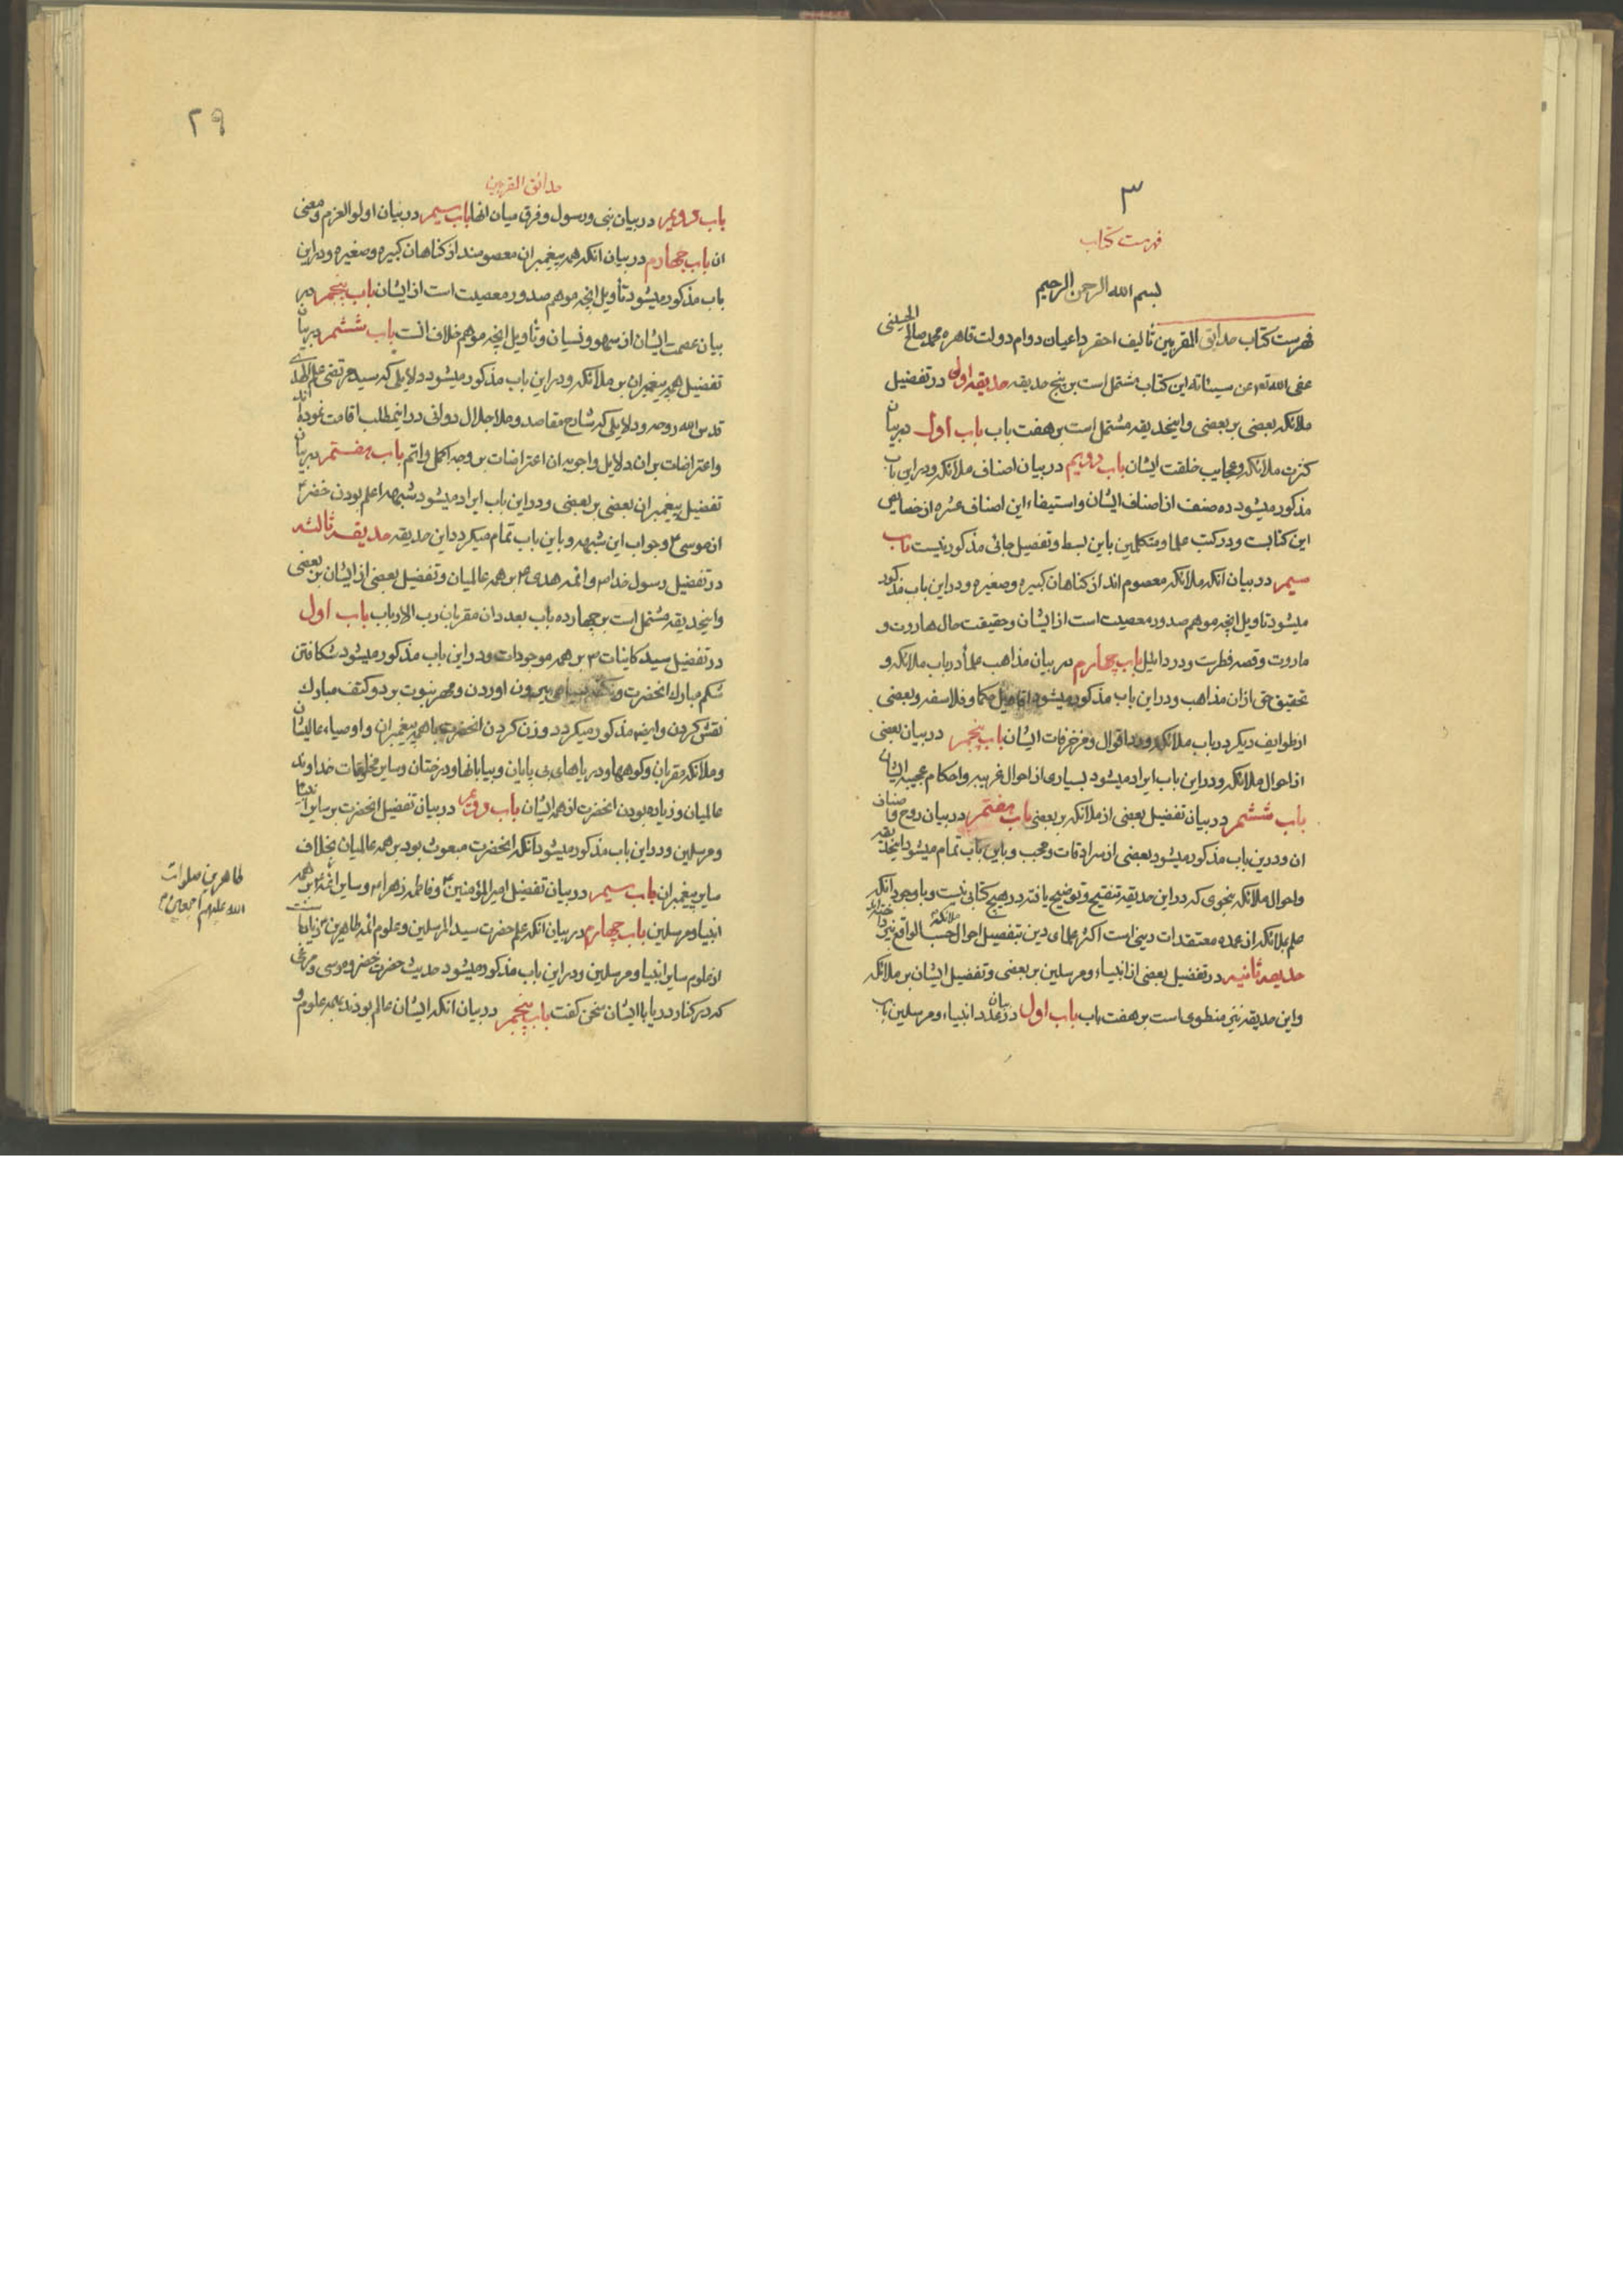 ٣
فهرست كتاب
بسم الله الرحمن الرحيم
فهرست كتاب حدائق المقربين تأليف احقر داعيان دوام دولت قاهره محمد صالح الحسيني
عفى الله تعـ عن سيئاته اين كتاب مشتمل است بر پنج حديقه حديقه اولى در تفضيل
ملائكه بعضى بر بعضى و اينحديقه مشتمل است بر هفت باب باب اول در بيان
كثرت ملائكه و عجايب خلقت ايشان باب دويم در بيان اصناف ملائكه و در اين باب
مذكور ميشود ده صنف از اصناف ايشان و استيفاء اين اصناف عشره از خصايص
اين كتابست و در كتب علما و متكلمين باين بسط و تفصيل جائى مذكور نيست باب
سيم در بيان انكه ملائكه معصوم اند از كناهان كبيره و صغيره و در اين باب مذكور
ميشود تاويل انچه موهم صدور معصيت است از ايشان و حقيقت حال هاروت و
ماروت و قصه فطرس و دردائيل باب چهارم در بيان مذاهب علما در باب ملائكه و
تحقيق حق از ان مذاهب و در اين باب مذكور ميشود اقاويل حكما و فلاسفه و بعضى
از طوايف ديكر در باب ملائكه و رد اقوال و مزخرفات ايشان باب پنجم در بيان بعضى
از احوال ملائكه و در اين باب ايراد ميشود بسيارى از احوال غريبه و احكام عجيبه ايشان
باب ششم در بيان تفضيل بعضى از ملائكه بر بعضى باب هفتم در بيان روح و اصناف
ان و درين باب مذكور ميشود بعضى از سرادقات و حجب و باين باب تمام ميشود اينحديقه
و احوال ملائكه بنحوى كه در اين حديقه تنقيح و توضيح يافته در هيچ كتابى نيست و با وجود آنكه
علم بملائكه از عمده معتقدات دينى است اكثر علماى دين بتفصيل احوال ملائكه حسب الواقع
حديقه ثانيه در تفضيل بعضى از انبياء و مرسلين بر بعضى و تفضيل ايشان بر ملائكه
و اين حديقه نيز منطوى است بر هفت باب باب اول در بيان عدد انبياء و مرسلين باب
٢٩
حدائق المقربين
باب دويم در بيان نبى و رسول و فرق ميان انها باب سيم در بيان اولو العزم و معنى
ان باب چهارم در بيان انكه همه پيغمبران معصومند از كناهان كبيره و صغيره و در اين
باب مذكور ميشود تأويل انچه موهم صدور معصيت است از ايشان باب پنجم در
بيان عصمت ايشان از سهو و نسيان و تأويل انچه موهم خلاف انست باب ششم در بيان
تفضيل همه پيغمبران بر ملائكه و در اين باب مذكور ميشود دلايلى كه سيد مرتضى علم الهدى
قدس الله روحه و دلايلى كه شارح مقاصد و ملا جلال دوانى در اينمطلب اقامت نموده اند
و اعتراضات بران دلايل و اجوبه ان اعتراضات بر وجه اكمل و اتم باب هفتم در بيان
تفضيل پيغمبران بعضى بر بعضى و در اين باب ايراد ميشود شبهه اعلم بودن خضر ع
از موسى ع و جواب اين شبهه و باين باب تمام ميكردد اين حديقه حديقه ثالثه
در تفضيل رسول خدا ص و ائمه هدى ع بر همه عالميان و تفضيل بعضى از ايشان بر بعضى
و اينحديقه مشتمل است بر چهارده باب بعدد ان مقربان رب الارباب باب اول
در تفضيل سيد كاينات ص بر همه موجودات و در اين باب مذكور ميشود شكافتن
شكم مبارك انحضرت و نكته سياهى بيرون اوردن و مهر نبوت بر دو كتف مبارك
نقش كردن و ايضا مذكور ميكردد وزن كردن انحضرت با همه پيغمبران و اوصياء عاليشان
و ملائكه مقربان و كوهها و درياهاى بى پايان و بيابانها و درختان و ساير مخلوقات خداوند
عالميان و زياده بودن انحضرت از همه ايشان باب دويم در بيان تفضيل انحضرت بر ساير انبيا
و مرسلين و در اين باب مذكور ميشود انكه انحضرت مبعوث بود بر همه عالميان بخلاف
ساير پيغمبران باب سيم در بيان تفضيل امير المؤمنين ع و فاطمه زهرا ع و ساير ائمه ع بر همه
انبيا و مرسلين باب چهارم در بيان انكه علم حضرت سيد المرسلين و علوم ائمه طاهرين ع زياده است
از علوم ساير انبيا و مرسلين و در اين باب مذكور ميشود حديث حضرت خضر و موسى و مرغى
كه در كنار دريا با ايشان سخن كفت باب پنجم در بيان انكه ايشان عالم بودند بهمه علوم و
طاهرين صلوات
الله عليهم اجمعين